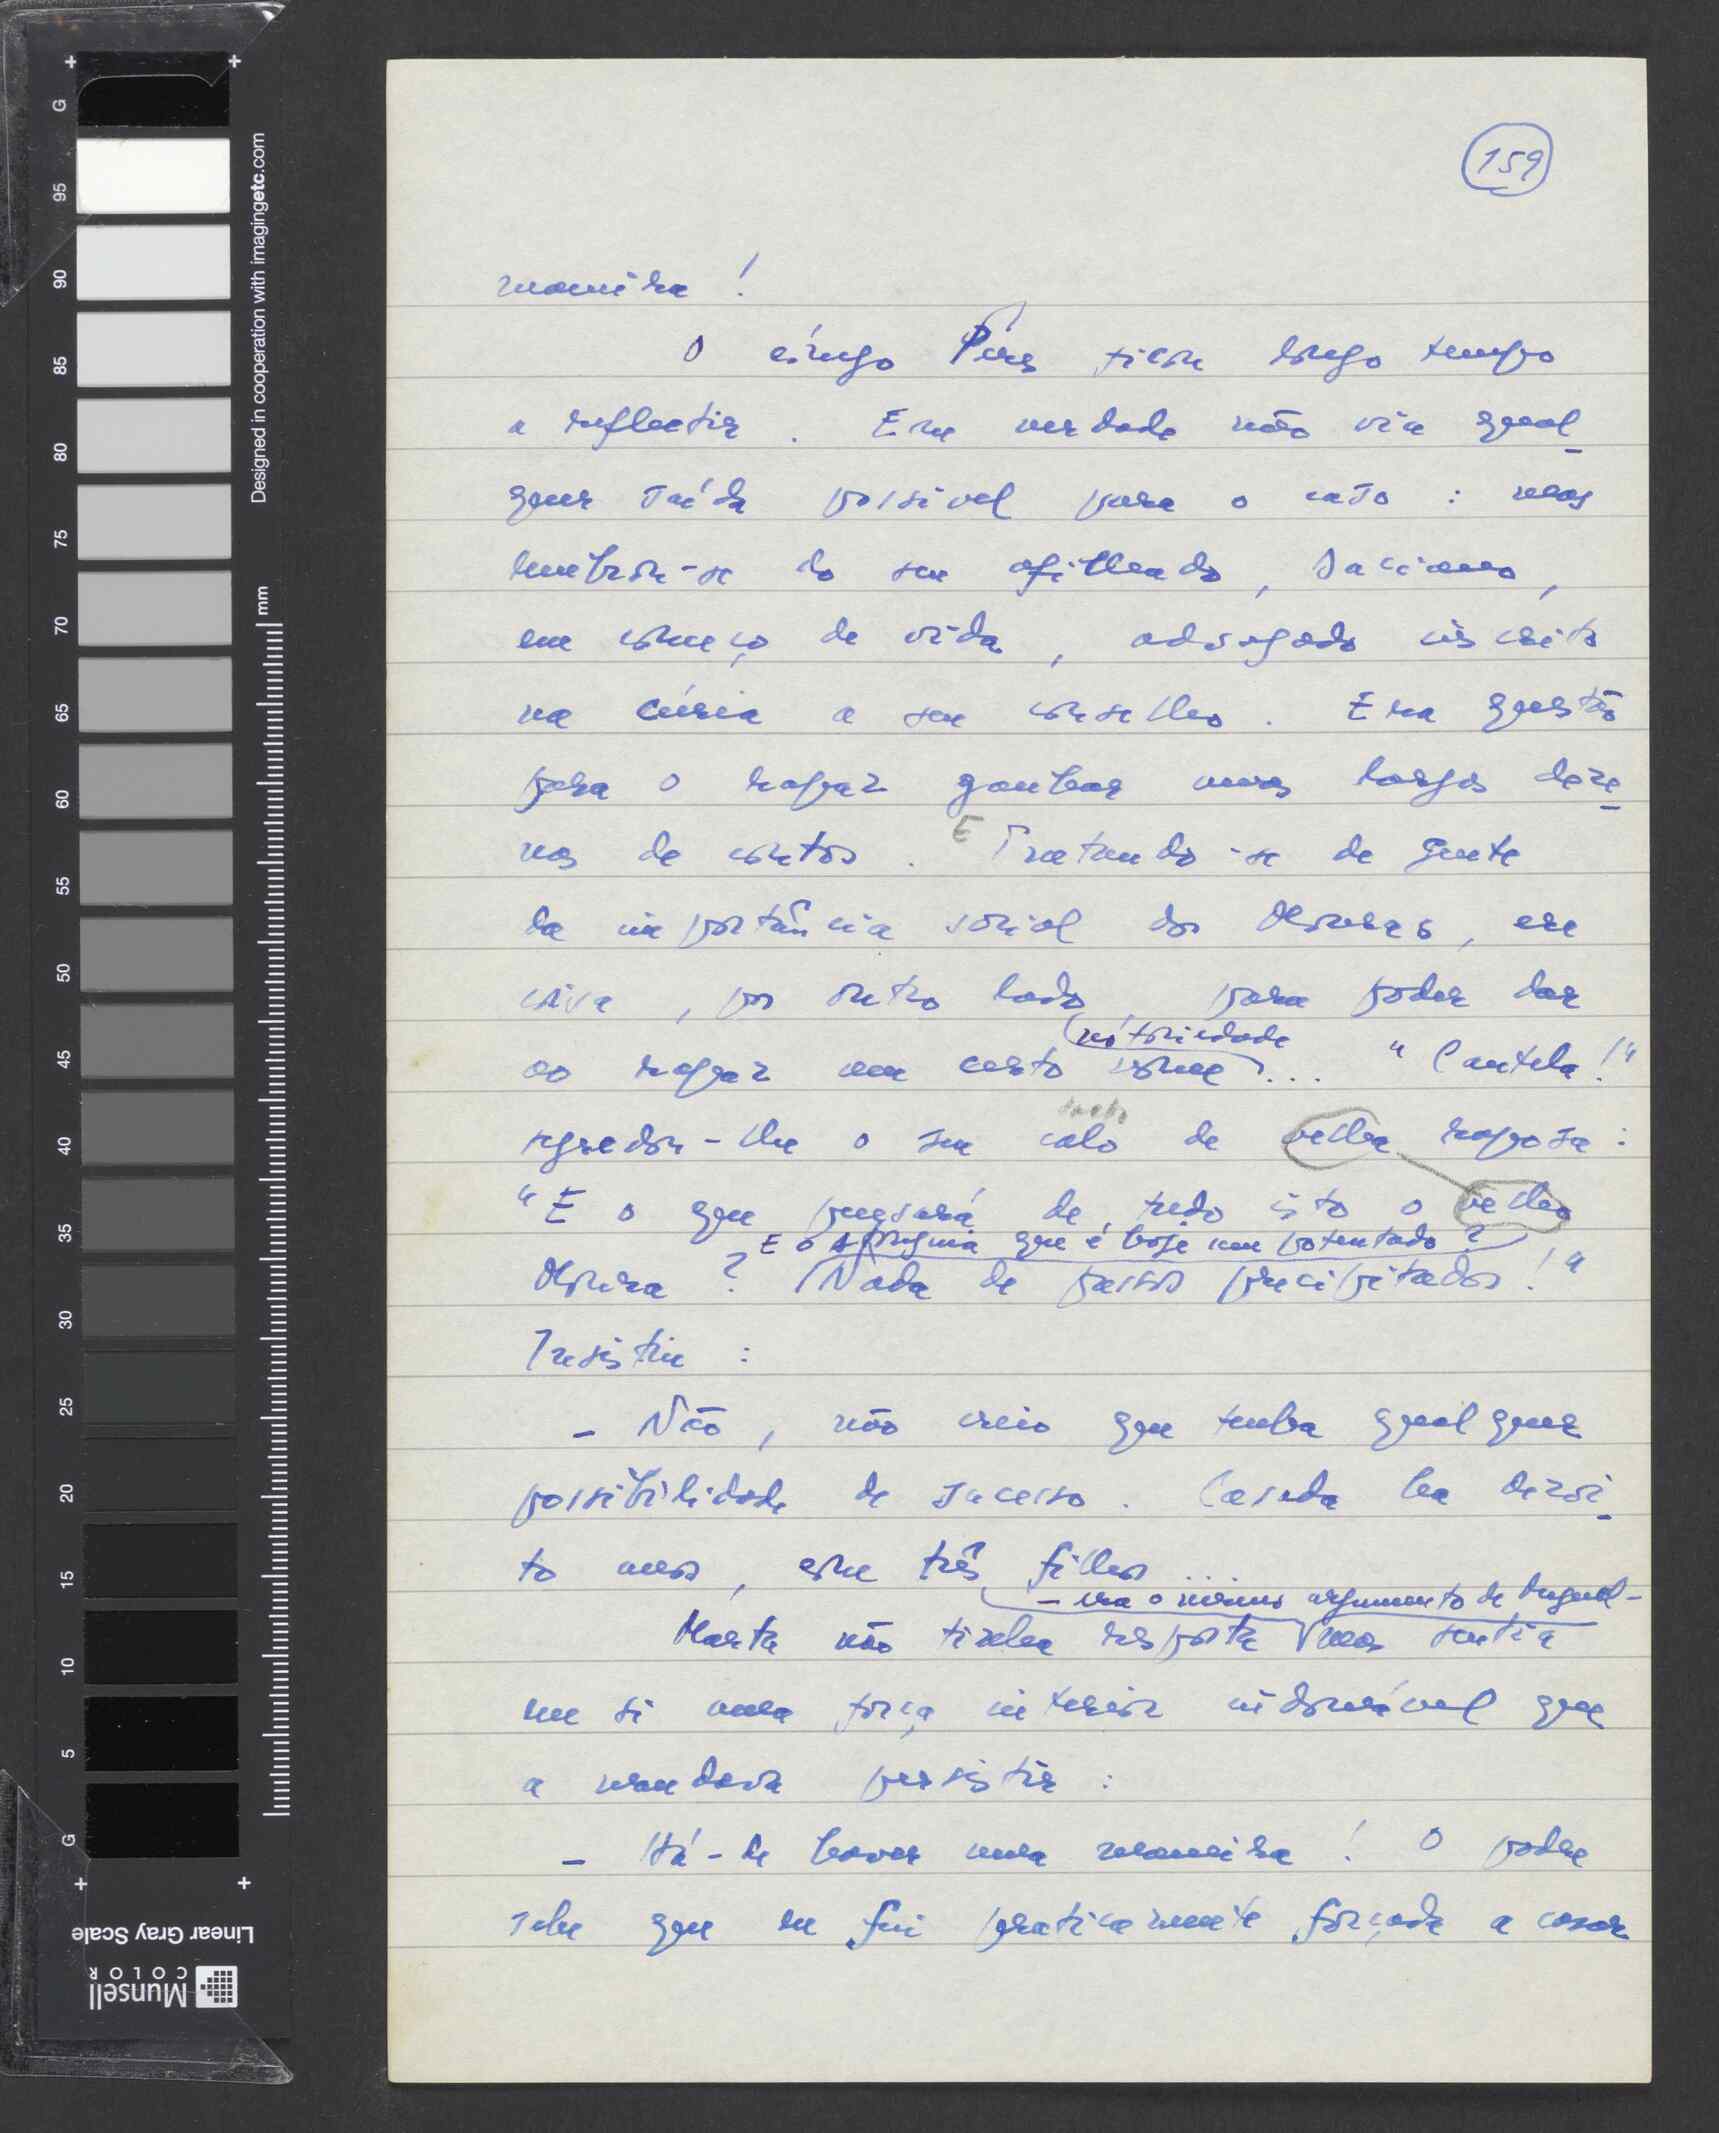 159
maneira !
O cónego Pires ficou longo tempo
a reflectir . Em verdade não via qual_
quer saída possível para o caso : mas
lembrou-se do seu afilhado, Saciano,
em começo de vida , advogado inscrito
na cúria a seu conselho . Era questão
para o rapaz ganhar umas largas deze_
nas de contos . E Tratando-se de gente
da importância social dos Mouras, era
coisa , por outro lado, para poder dar
notoriedade
ao rapaz um certo nome ... " Cautela ! "
segredou-lhe o seu calo de velha raposa :
" E o que pensará de tudo isto o velho
E o que é hoje um potentado ?
Moura ? Nada de passos precipitados ! "
Insistiu :
- Não , não creio que tenha qualquer
possibilidade de sucesso . Casada ha dezoi_
to anos , com três filhos ...
- era o mesmo argumento de Miguel -
Marta não tinha resposta mas sentia
em si uma força interior indomável que
a mandava persistir :
- Há-de haver uma maneira ! O padre
sabe que eu fui praticamente forçada a casar
G
95
90
85
80
75
70
65
60
55
50
45
40
35
30
25
20
15
10
5
G
Designed in cooperation with imagingetc.com
mm
Linear Gray Scale
Munsell
COLOR